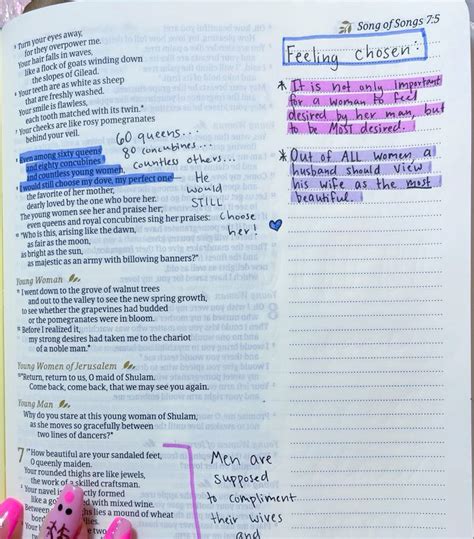 Song of Songs 7:5
5 Turn your eyes away,
for they overpower me.
Your hair falls in waves,
like a flock of goats winding down
the slopes of Gilead.
6 Your teeth are as white as sheep
that are freshly washed.
Your smile is flawless,
each tooth matched with its twin.*
7 Your cheeks are like rosy pomegranates
behind your veil.
8 Even among sixty queens
and eighty concubines
and countless young women,
9 I would still choose my dove, my perfect one—
the favorite of her mother,
dearly loved by the one who bore her.
The young women see her and praise her;
even queens and royal concubines sing her praises:
10 "Who is this, arising like the dawn,
as fair as the moon,
as bright as the sun,
as majestic as an army with billowing banners?"
Young Woman
11 I went down to the grove of walnut trees
and out to the valley to see the new spring growth,
to see whether the grapevines had budded
or the pomegranates were in bloom.
12 Before I realized it,
my strong desires had taken me to the chariot
of a noble man.*
Young Women of Jerusalem
13 *Return, return to us, O maid of Shulam.
Come back, come back, that we may see you again.
Young Man
Why do you stare at this young woman of Shulam,
as she moves so gracefully between
two lines of dancers?*
7 1*How beautiful are your sandaled feet,
O queenly maiden.
Your rounded thighs are like jewels,
the work of a skilled craftsman.
2 Your navel is perfectly formed
like a goblet filled with mixed wine.
Between your thighs lies a mound of wheat
60 queens...
80 concubines...
countless others...
He
would
STILL
choose
her!
Feeling chosen:
* It is not only important
for a woman to feel
desired by her man, but
to be MOST desired.
* Out of ALL women, a
husband should view
his wife as the most
beautiful.
Men are
supposed
to compliment
their wives
and